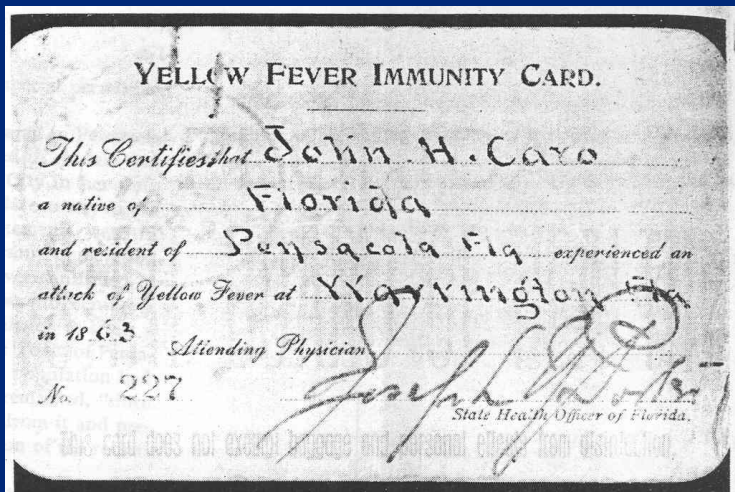 YELLOW FEVER IMMUNITY CARD.
This Certifies, that John. H. Caro
a native of Florida
and resident of Pensacola Fla experienced an
attack of Yellow Fever at Warrington Fla
in 1863 Attending Physician
No. 227 Joseph Y. Porter
State Health Officer of Florida.
This card does not exempt baggage and personal effects from disinfection.